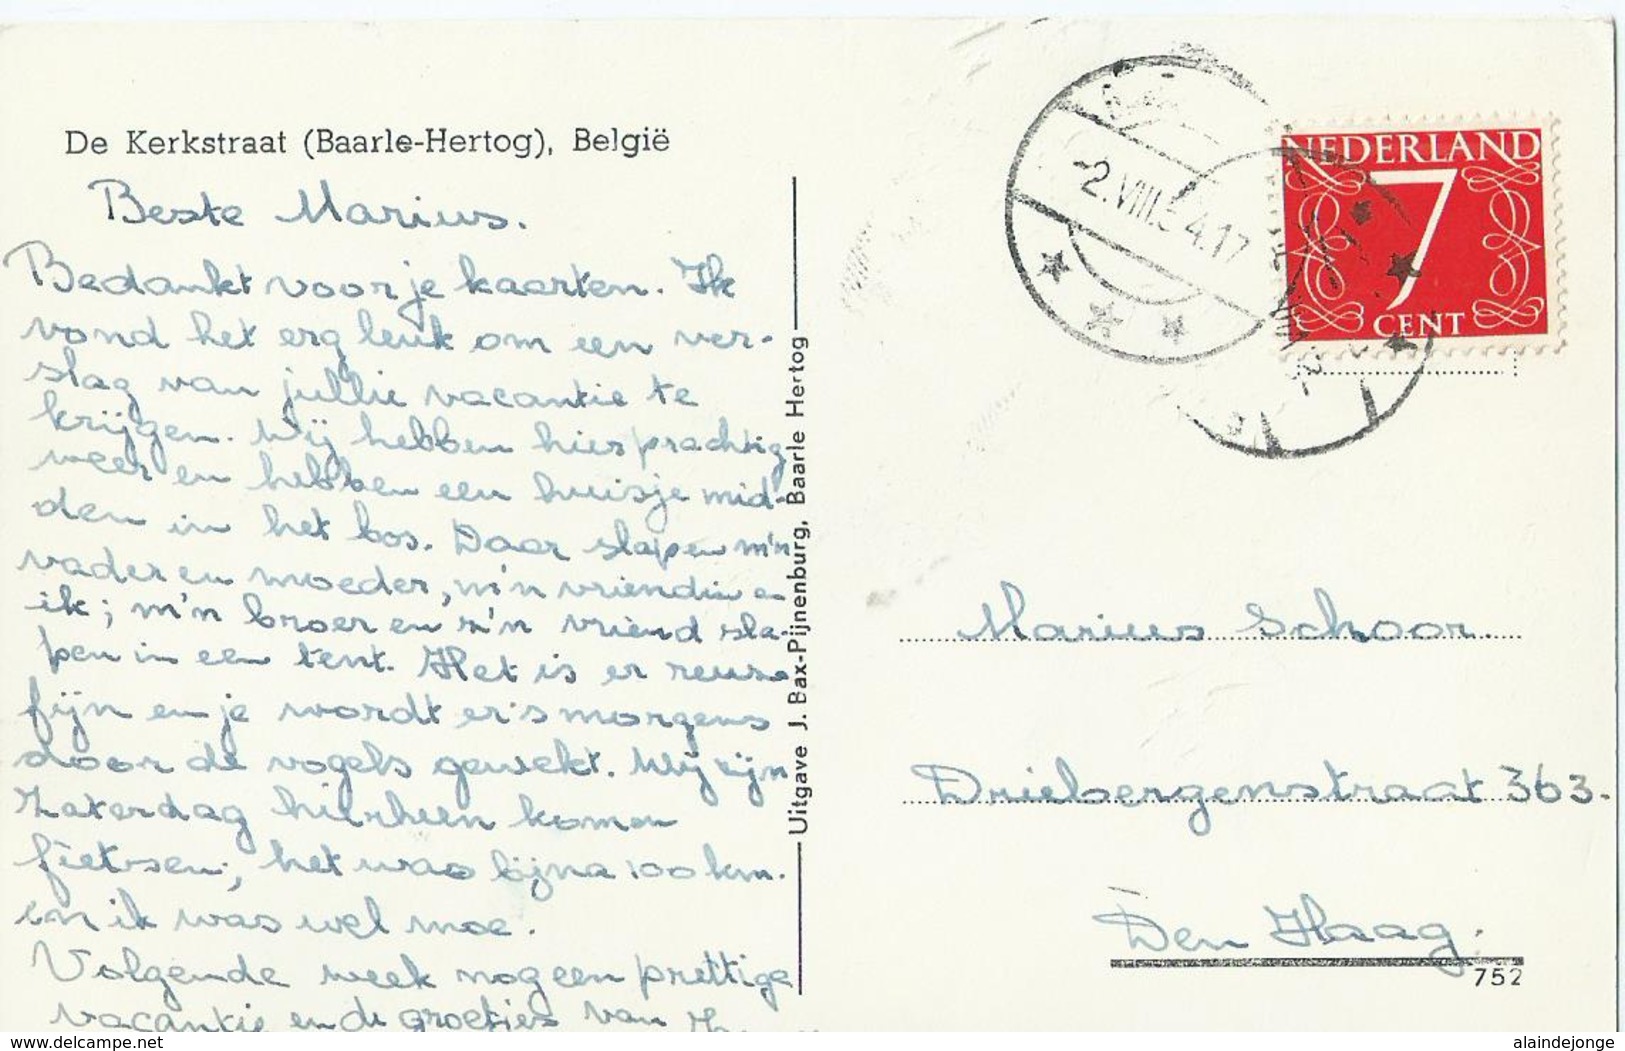 De Kerkstraat (Baarle-Hertog), België
Beste Marius.
Bedankt voor je kaarten. Ik
vond het erg leuk om een ver-
slag van jullie vacantie te
krijgen. Wij hebben hier prachtig
weer en hebben een huisje mid-
den in het bos. Daar slapen m'n
vader en moeder, m'n vriendin en
ik; m'n broer en z'n vriend sla-
pen in een tent. Het is er reuze
fijn en je wordt er 's morgens
door de vogels gewekt. Wij zijn
Zaterdag hierheen komen
fietsen, het was bijna 100 km.
en ik was wel moe.
Volgende week nog een prettige
vacantie en de groetjes van
Uitgave J. Bax-Pijnenburg, Baarle Hertog
-2.VIII.54.17
NEDERLAND
7
CENT
Marius Schoor.
Driebergenstraat 363.
Den Haag.
752
www.delcampe.net
alaindejonge